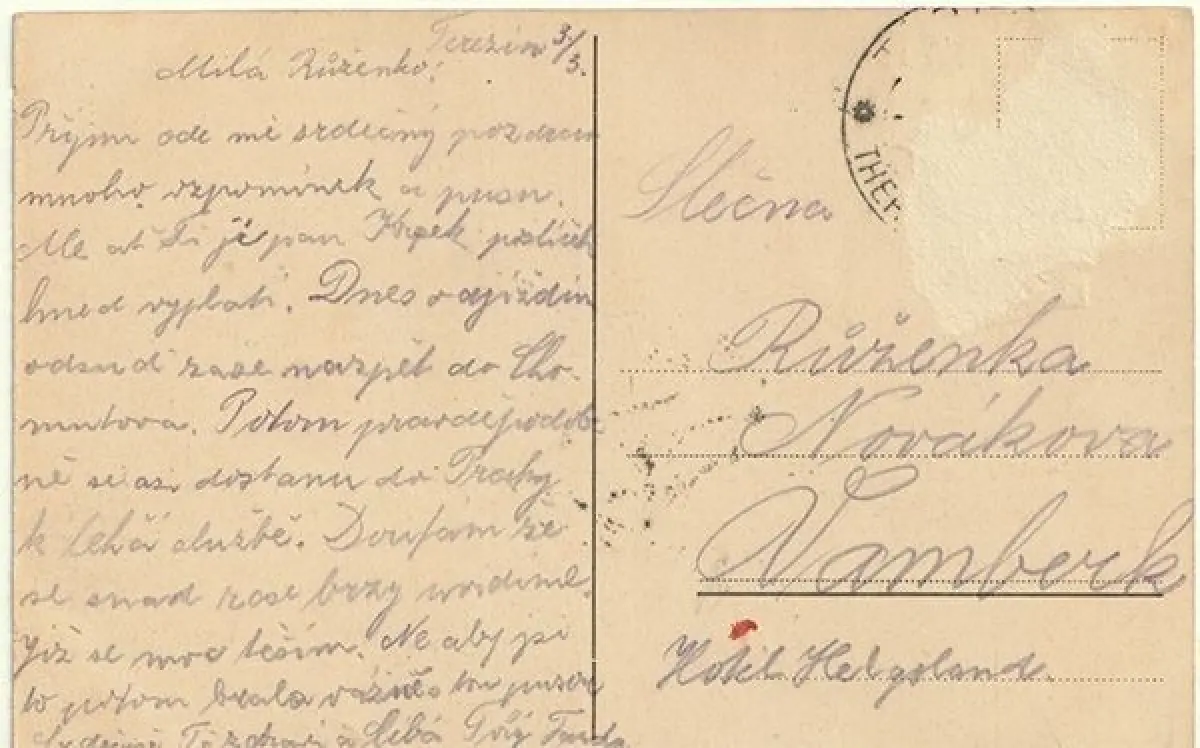 Terezín 3/3.
Milá Růženko!
Přijm ode mě srdečný pozdrav
mnoho vzpomínek a pusu.
Ale ať Ti je pan
hned vyplatí. Dnes odjíždím
odsud zase nazpět do Cho-
mutova. Potom pravděpodob
ně se asi dostanu do Prahy
k lehčá službě. Doufám že
se snad zase brzy uvidíme.
Již se moc těším. Ne aby jsi
to potom brala vážně tu pusu
Srdečně Tě zdraví a líbá Tvůj
THE
Slečna
Růženka
Nováková
Vamberk
Hotel Helgoland.